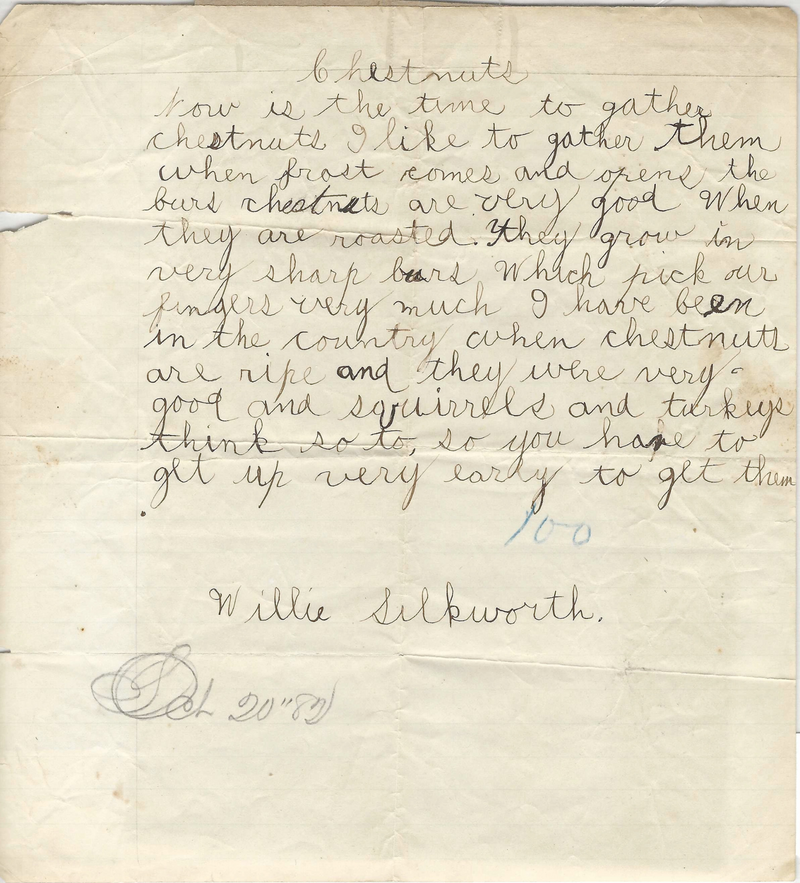 Chestnuts
Now is the time to gather
chestnuts I like to gather them
when frost comes and opens the
burs chestnuts are very good When
they are roasted. They grow in
very sharp burs Which pick our
fingers very much I have been
in the country when chestnuts
are ripe and they were very
good and squirrels and turkeys
think so to, so you have to
get up very early to get them
.
100
Willie Silkworth.
Oct 20" 82